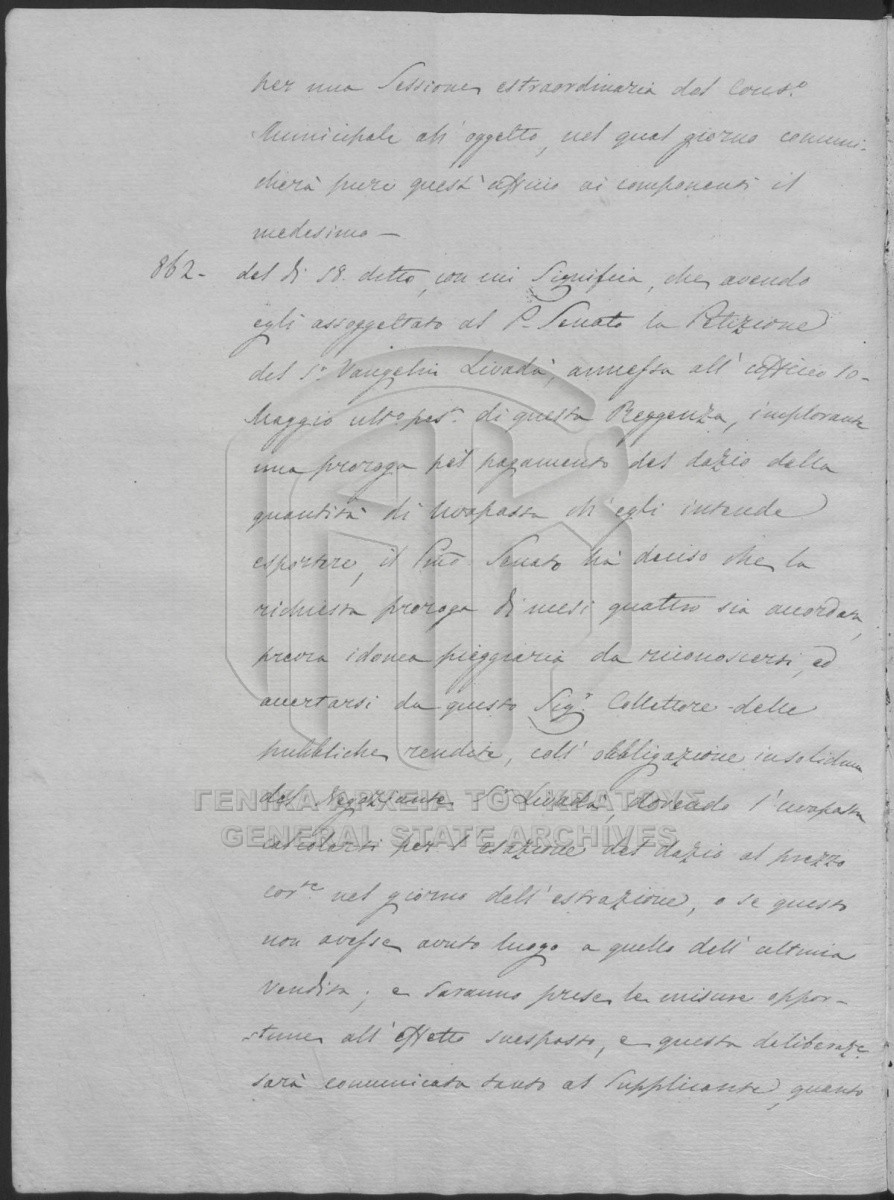 per una Sessione estraordinaria del Cons.o
Municipale all' oggetto, nel qual giorno comuni-
cherà pure quest' officio ai componenti il
medesimo —
862 - del dì 18. detto, con cui Significa, che avendo
egli assoggettato al P. Senato la Petizione
del Sr. Vangelin Livadà, annessa all' officio 10-
Maggio ult.o pes.o di questa Reggenza, implorante
una proroga pel pagamento del dazio della
quantità di Uvapassa ch' egli intende
esportare, il Senato hà deciso che la
richiesta proroga di mesi quattro sia accordata,
previa idonea pieggiaria da riconoscersi, ed
accertarsi da questo Sigr. Collettore delle
pubbliche rendite, coll' obbligazione insolidum
del Negoziante Livadà, dovendo l' uvapassa
calcolarsi per l' esazione del dazio al prezzo
cor.te nel giorno dell' estrazione, o se questo
non avesse avuto luogo a quello dell' ultima
vendita; e saranno prese le misure oppor-
tune all' effetto suesposto, e questa deliberaz.e
sarà comunicata tanto al Supplicante, quanto
ΓΕΝΙΚΑ ΑΡΧΕΙΑ ΤΟΥ ΚΡΑΤΟΥΣ
GENERAL STATE ARCHIVES